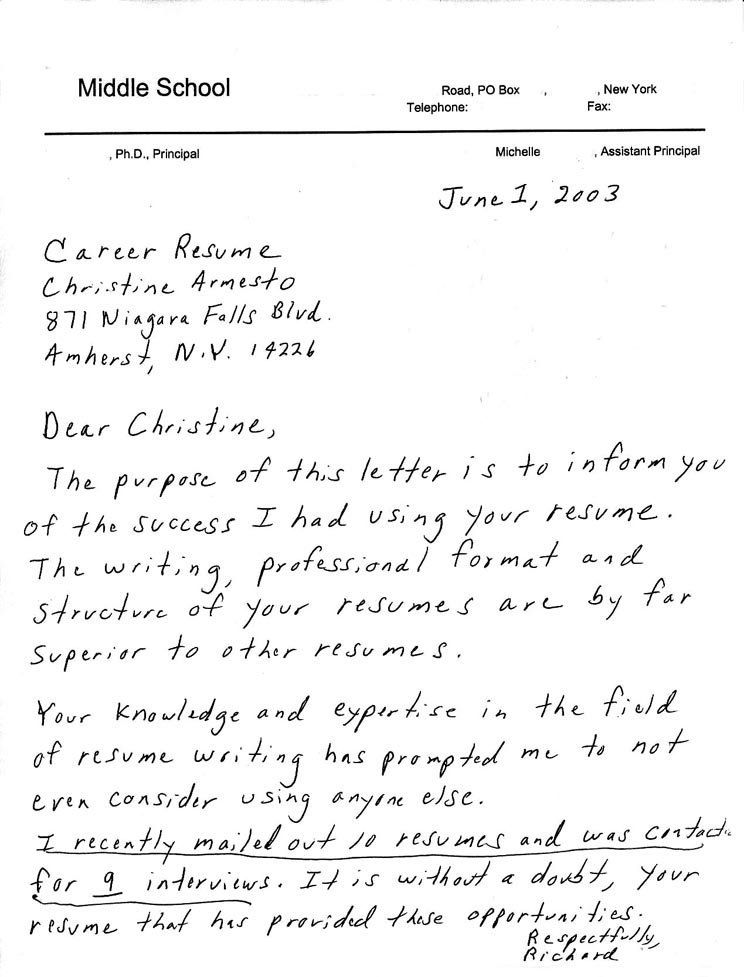 Middle School
Road, PO Box , , New York
Telephone: Fax:
, Ph.D., Principal Michelle , Assistant Principal
June 1, 2003
Career Resume
Christine Armesto
871 Niagara Falls Blvd.
Amherst, N.Y. 14226
Dear Christine,
The purpose of this letter is to inform you
of the success I had using your resume.
The writing, professional format and
structure of your resumes are by far
superior to other resumes.
Your knowledge and expertise in the field
of resume writing has prompted me to not
even consider using anyone else.
I recently mailed out 10 resumes and was contact
for 9 interviews. It is without a doubt, your
resume that has provided these opportunities.
Respectfully,
Richard